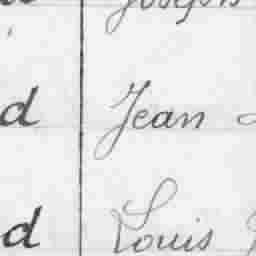 Joseph
d Jean
d Louis